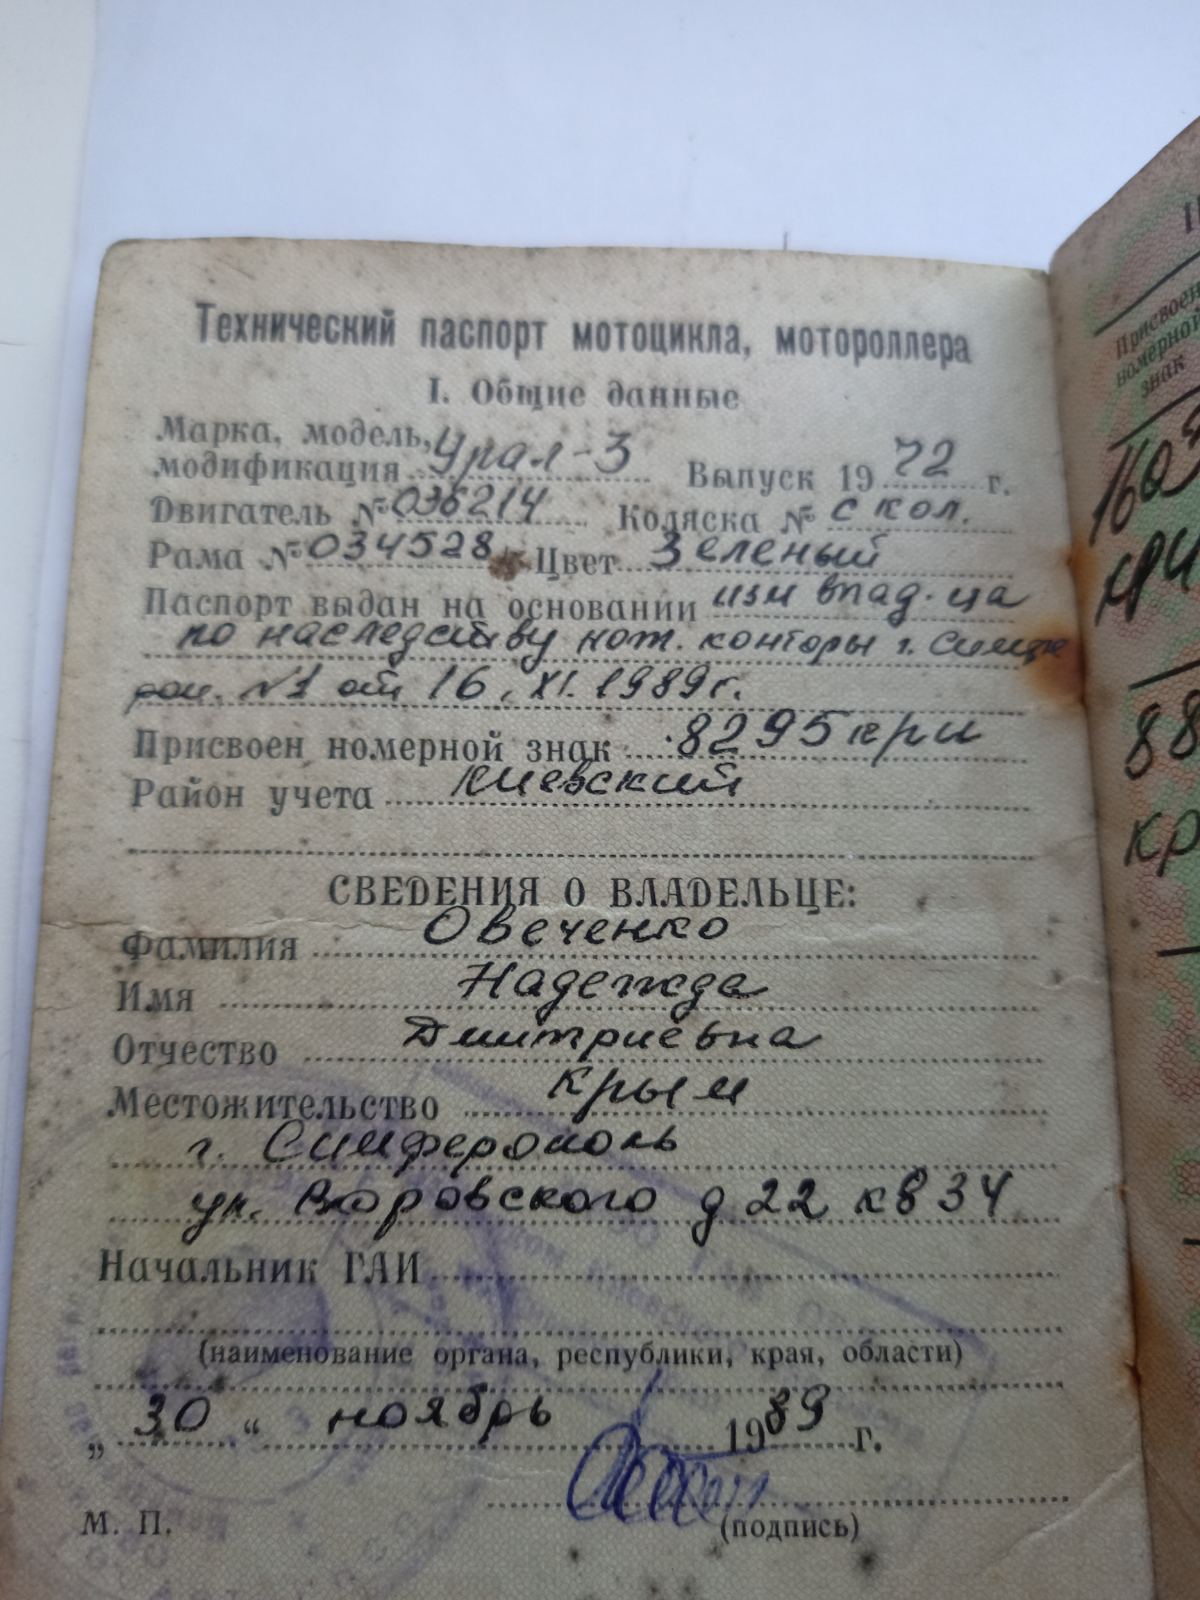 Технический паспорт мотоцикла, мотороллера
I. Общие данные
Марка, модель,
модификация Урал-3 Выпуск 19 72 г.
Двигатель № 036214 Коляска № с кол.
Рама № 034528 Цвет Зеленый
Паспорт выдан на основании изм влад-ца
по наследству нот. конторы г. Симфе
роп. №1 от 16. XI. 1989г.
Присвоен номерной знак 8295 кри
Район учета Киевский
СВЕДЕНИЯ О ВЛАДЕЛЬЦЕ:
Фамилия Овеченко
Имя Надежда
Отчество Дмитриевна
Местожительство Крым
г. Симферополь
ул. Воровского д 22 кв 34
Начальник ГАИ
(наименование органа, республики, края, области)
„ 30 “ ноябрь 1989 г.
(подпись)
М. П.
Присвоен
номерной
знак
88
кр